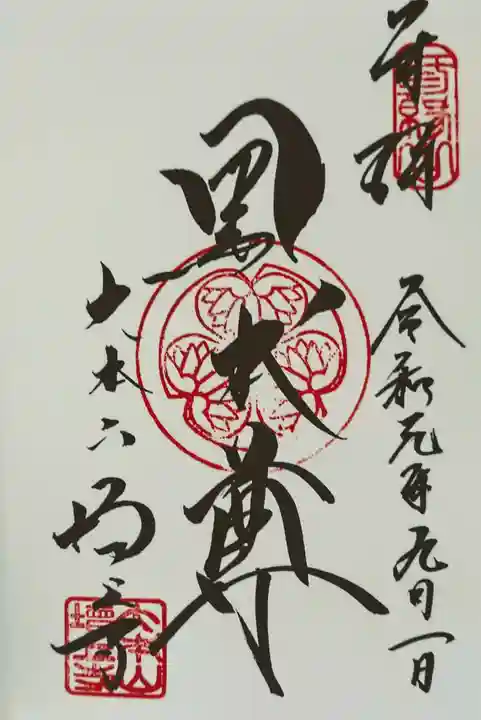 奉拝
令和元年九月一日
黒本尊
大本山増上寺